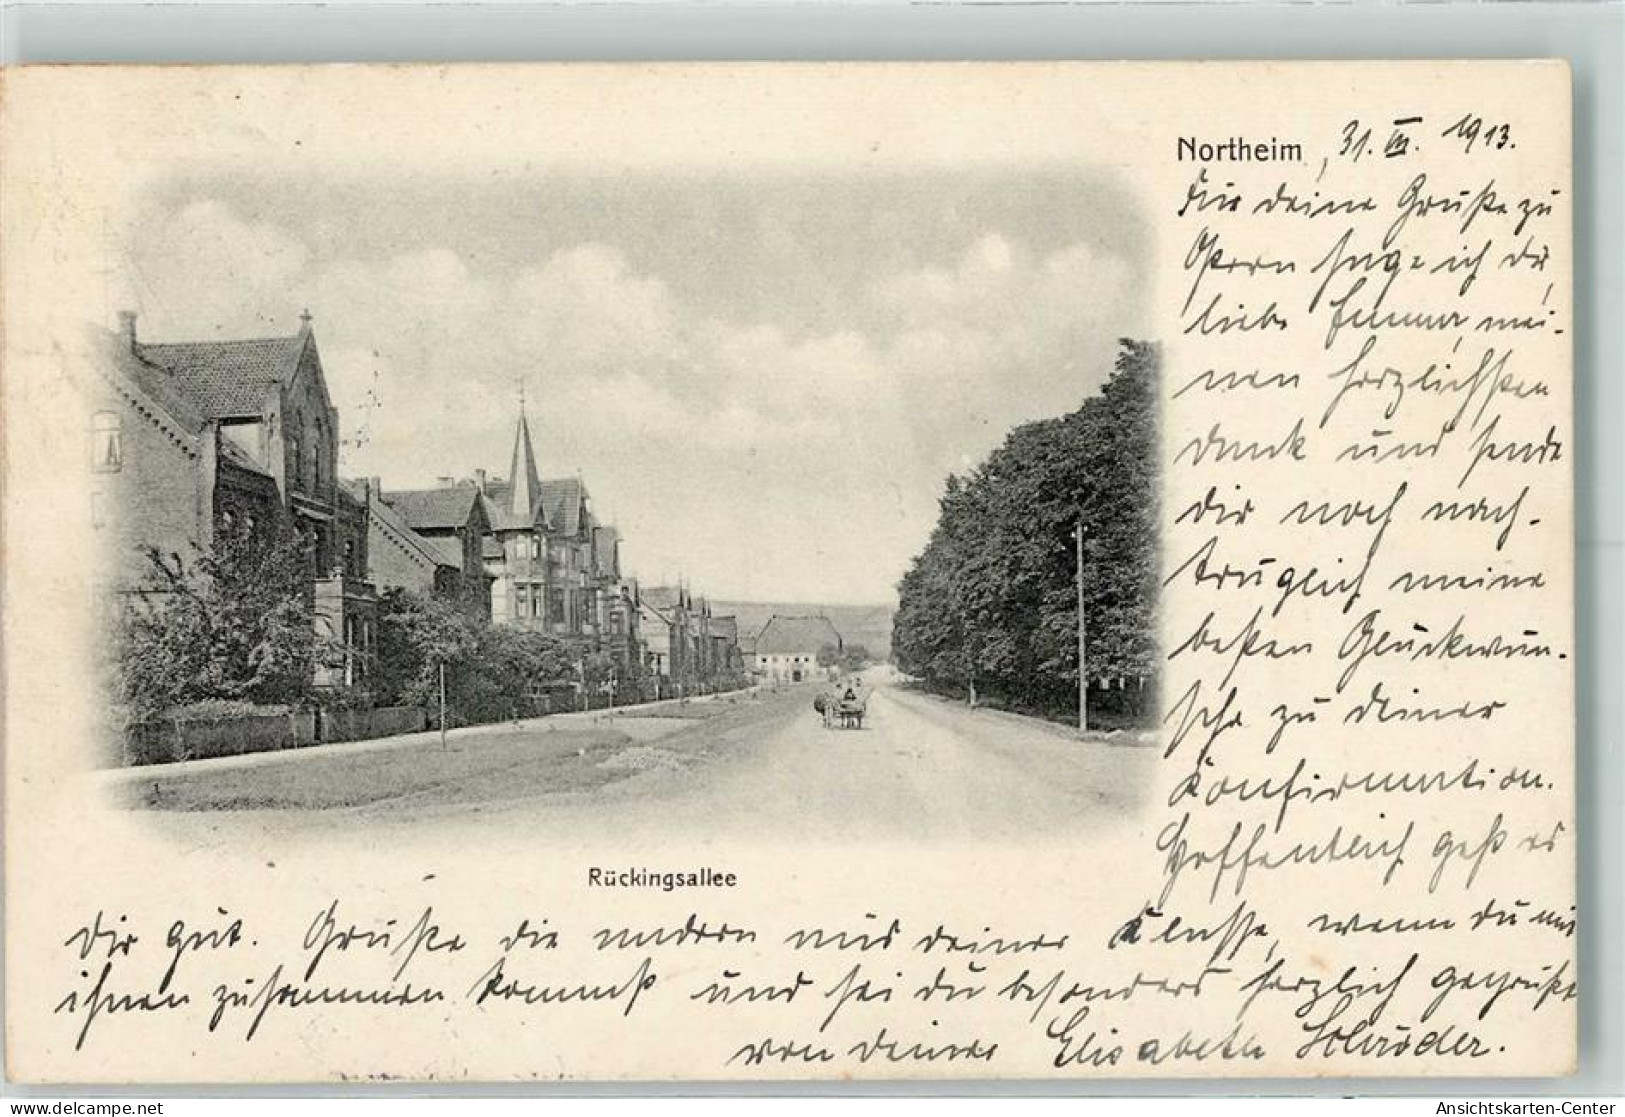 Northeim, 31. III. 1913.
Für deine Grüße zu
Ostern sage ich dir,
liebe Emma, mei-
nen herzlichsten
Dank und sende
dir noch nach-
träglich meine
besten Glückwün-
sche zu deiner
Konfirmation.
Hoffentlich geht es
Rückingsallee
dir gut. Grüße die andern aus deiner Klasse, wenn du mit
ihnen zusammen kommst und sei du besonders herzlich gegrüßt
von deiner Elisabeth Schröder.
Ansichtskarten-Center
www.delcampe.net